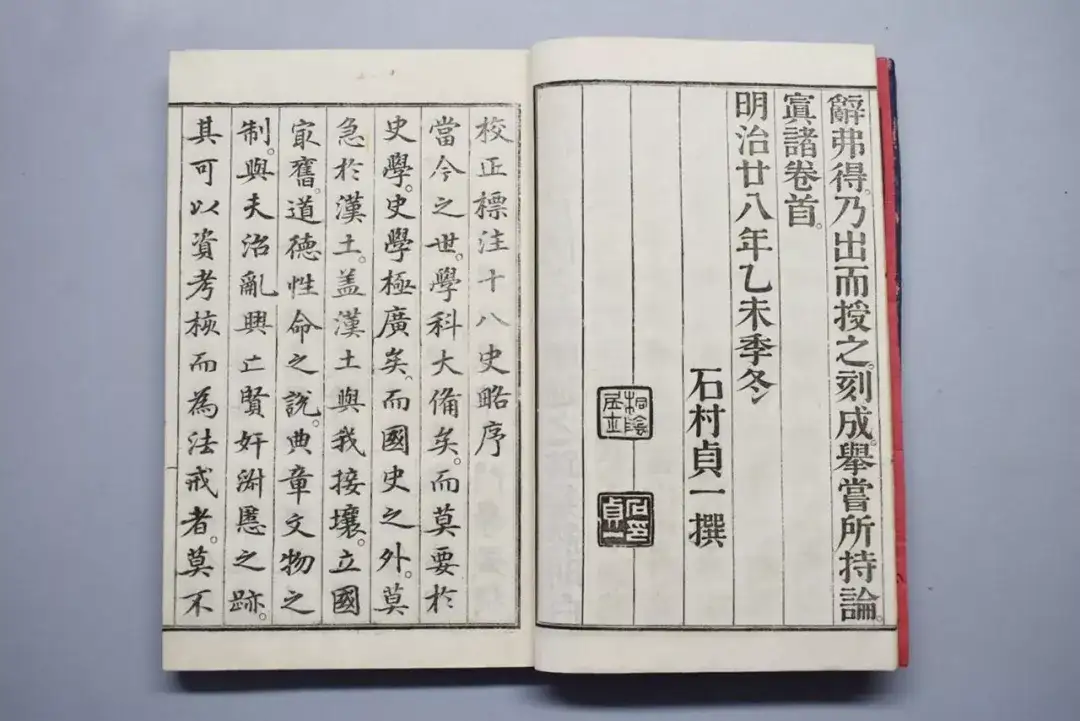 辭弗得。乃出而授之。刻成。擧嘗所持論。
寘諸卷首。
明治廿八年乙未季冬
石村貞一撰
桐陰居士
校正標注十八史略序
當今之世。學科大備矣。而莫要於
史學。史學極廣矣。而國史之外。莫
急於漢土。盖漢土與我接壤。立國
冣舊。道德性命之說。典章文物之
制。與夫治亂興亡賢奸淑慝之跡。
其可以資考核而為法戒者。莫不